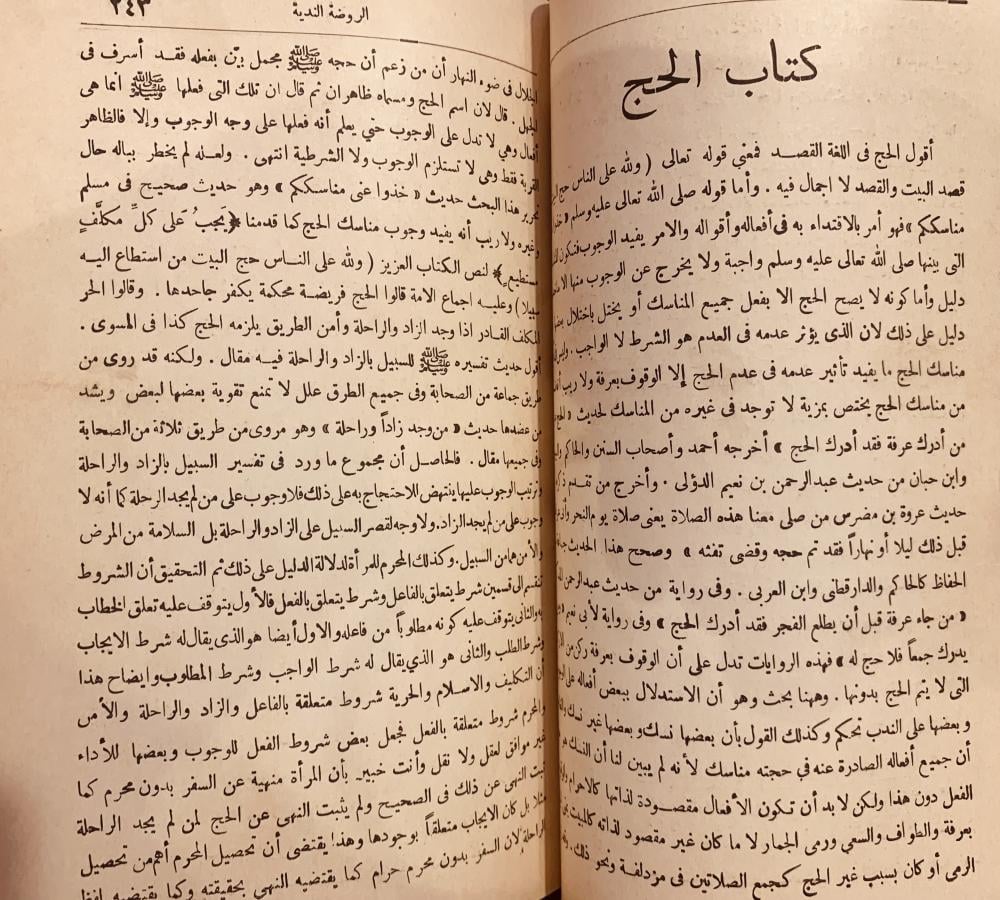 كتاب الحج
أقول الحج فى اللغة القصد فمعنى قوله تعالى ( ولله على الناس حج
قصد البيت والقصد لا اجمال فيه . وأما قوله صلى الله تعالى عليه وسلم «
مناسككم » فهو أمر بالاقتداء به فى أفعاله وأقواله والامر يفيد الوجوب فتكون
التى بينها صلى الله تعالى عليه وسلم واجبة ولا يخرج عن الوجوب منها الا
دليل وأما كونه لا يصح الحج الا بفعل جميع المناسك أو يختل باختلال
دليل على ذلك لان الذى يؤثر عدمه فى العدم هو الشرط لا الواجب .
مناسك الحج ما يفيد تأثير عدمه فى عدم الحج إلا الوقوف بعرفة ولا ريب
من مناسك الحج يختص بمزية لا توجد فى غيره من المناسك لحديث «
من أدرك عرفة فقد أدرك الحج » أخرجه أحمد وأصحاب السنن والحاكم
وابن حبان من حديث عبد الرحمن بن نعيم الدؤلى . وأخرج من تقدم
حديث عروة بن مضرس من صلى معنا هذه الصلاة يعنى صلاة يوم النحر
قبل ذلك ليلا أو نهاراً فقد تم حجه وقضى تفثه » وصحح هذا الحديث
الحفاظ كالحاكم والدارقطنى وابن العربى . وفى رواية من حديث عبد الرحمن
« من جاء عرفة قبل أن يطلع الفجر فقد أدرك الحج » وفى رواية لأبى
يدرك جمعاً فلا حج له » فهذه الروايات تدل على أن الوقوف بعرفة ركن من
التى لا يتم الحج بدونها . وههنا بحث وهو أن الاستدلال ببعض أفعاله على
وبعضها على الندب تحكم وكذلك القول بأن بعضها نسك وبعضها غير نسك
أن جميع أفعاله الصادرة عنه فى حجته مناسك لأنه لم يبين لنا أن النسك هو
الفعل دون هذا ولكن لا بد أن تكون الأفعال مقصودة لذاتها كالاحرام
بعرفة والطواف والسعي ورمى الجمار لا ما كان غير مقصود لذاته كالمبيت
الرمى أو كان بسبب غير الحج كجمع الصلاتين فى مزدلفة ونحو ذلك
الروضة الندية
٢٤٣
فى ضوء النهار أن من زعم أن حجه ﷺ مجمل بين بفعله فقد أسرف فى
. قال لان اسم الحج ومسماه ظاهران ثم قال ان تلك التى فعلها ﷺ انما هى
أفعال وهي لا تدل على الوجوب حتي يعلم أنه فعلها على وجه الوجوب وإلا فالظاهر
القربة فقط وهى لا تستلزم الوجوب ولا الشرطية انتهى . ولعله لم يخطر بباله حال
تحرير هذا البحث حديث « خذوا عنى مناسككم » وهو حديث صحيح فى مسلم
وغيره ولا ريب أنه يفيد وجوب مناسك الحج كما قدمنا ﴿ يَجبُ عَلى كلِّ مكلَّفٍ
مستطيعٍ ﴾ لنص الكتاب العزيز ( ولله على الناس حج البيت من استطاع اليه
سبيلا ) وعليه اجماع الامة قالوا الحج فريضة محكمة يكفر جاحدها . وقالوا الحر
المكلف القادر اذا وجد الزاد والراحلة وأمن الطريق يلزمه الحج كذا فى المسوى .
أقول حديث تفسيره ﷺ للسبيل بالزاد والراحلة فيه مقال . ولكنه قد روى من
طريق جماعة من الصحابة وفى جميع الطرق علل لا تمنع تقوية بعضها لبعض ويشد
من عضدها حديث « من وجد زاداً وراحلة » وهو مروى من طريق ثلاثة من الصحابة
وفى جميعها مقال . فالحاصل أن مجموع ما ورد فى تفسير السبيل بالزاد والراحلة
وترتيب الوجوب عليها ينتهض للاحتجاج به على ذلك فلا وجوب على من لم يجد الراحلة كما أنه لا
وجوب على من لم يجد الزاد . ولا وجه لقصر السبيل على الزاد والراحلة بل السلامة من المرض
والأمن هما من السبيل . وكذلك المحرم للمرأة لدلالة الدليل على ذلك ثم التحقيق أن الشروط
تنقسم الى قسمين شرط يتعلق بالفاعل وشرط يتعلق بالفعل فالأول يتوقف عليه تعلق الخطاب
به والثانى يتوقف عليه كونه مطلوباً من فاعله والاول أيضا هو الذى يقال له شرط الايجاب
وشرط الطلب والثانى هو الذى يقال له شرط الواجب وشرط المطلوب وايضاح هذا
أن التكليف والاسلام والحرية شروط متعلقة بالفاعل والزاد والراحلة والأمن
والمحرم شروط متعلقة بالفعل فجعل بعض شروط الفعل للوجوب وبعضها للأداء
غير موافق لعقل ولا نقل وأنت خبير بأن المرأة منهية عن السفر بدون محرم كما
ثبت النهى عن ذلك فى الصحيح ولم يثبت النهى عن الحج لمن لم يجد الراحلة
مثلا بل كان الايجاب متعلقاً بوجودها وهذا يقتضى أن تحصيل المحرم أهم من تحصيل
الراحلة لان السفر بدون محرم حرام كما يقتضيه النهى بحقيقته وكما يقتضيه